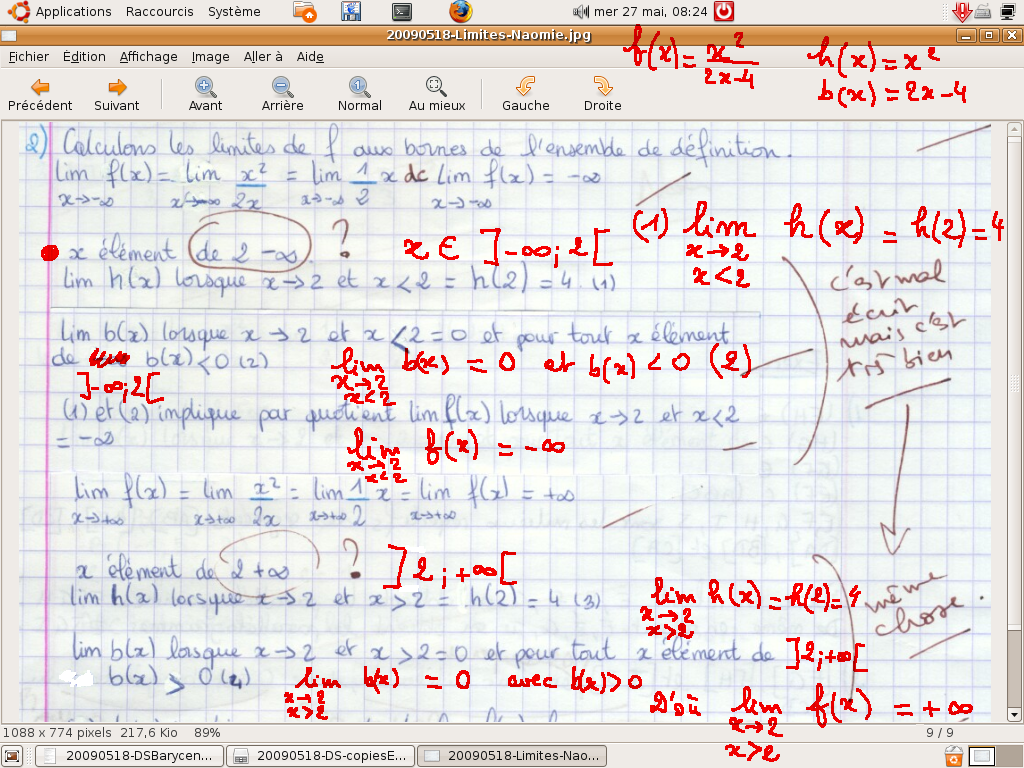 Applications Raccourcis Système mer 27 mai, 08:24
20090518-Limites-Naomie.jpg
Fichier Édition Affichage Image Aller à Aide
Précédent Suivant Avant Arrière Normal Au mieux Gauche Droite
f(x) = x²/(2x-4)
h(x) = x²
b(x) = 2x-4
2) Calculons les limites de f aux bornes de l'ensemble de définition.
lim f(x) = lim x²/2x = lim 1/2 x dc lim f(x) = -∞
x→-∞ x→-∞ x→-∞ x→-∞
x élément de 2 -∞ ? x ∈ ]-∞; 2[
(1) lim h(x) = h(2) = 4
x→2
x<2
lim h(x) lorsque x→2 et x<2 = h(2) = 4. (1)
c'est mal
écrit
mais c'est
très bien
lim b(x) lorsque x→2 et x<2 = 0 et pour tout x élément
de b(x)<0 (2)
]-∞; 2[
lim b(x) = 0 et b(x) < 0 (2)
x→2
x<2
(1) et (2) implique par quotient lim f(x) lorsque x→2 et x<2
= -∞
lim f(x) = -∞
x→2
x<2
lim f(x) = lim x²/2x = lim 1/2 x = lim f(x) = +∞
x→+∞ x→+∞ x→+∞ x→+∞
x élément de 2 +∞ ? ]2; +∞[
lim h(x) lorsque x→2 et x>2 = h(2) = 4 (3)
lim h(x) = h(2) = 4
x→2
x>2
même
chose.
lim b(x) lorsque x→2 et x>2 = 0 et pour tout x élément de ]2; +∞[
b(x) > 0 (4)
lim b(x) = 0 avec b(x) > 0
x→2
x>2
D'où lim f(x) = +∞
x→2
x>2
1088 x 774 pixels 217,6 Kio 89% 9 / 9
20090518-DSBarycen... 20090518-DS-copiesE... 20090518-Limites-Nao...